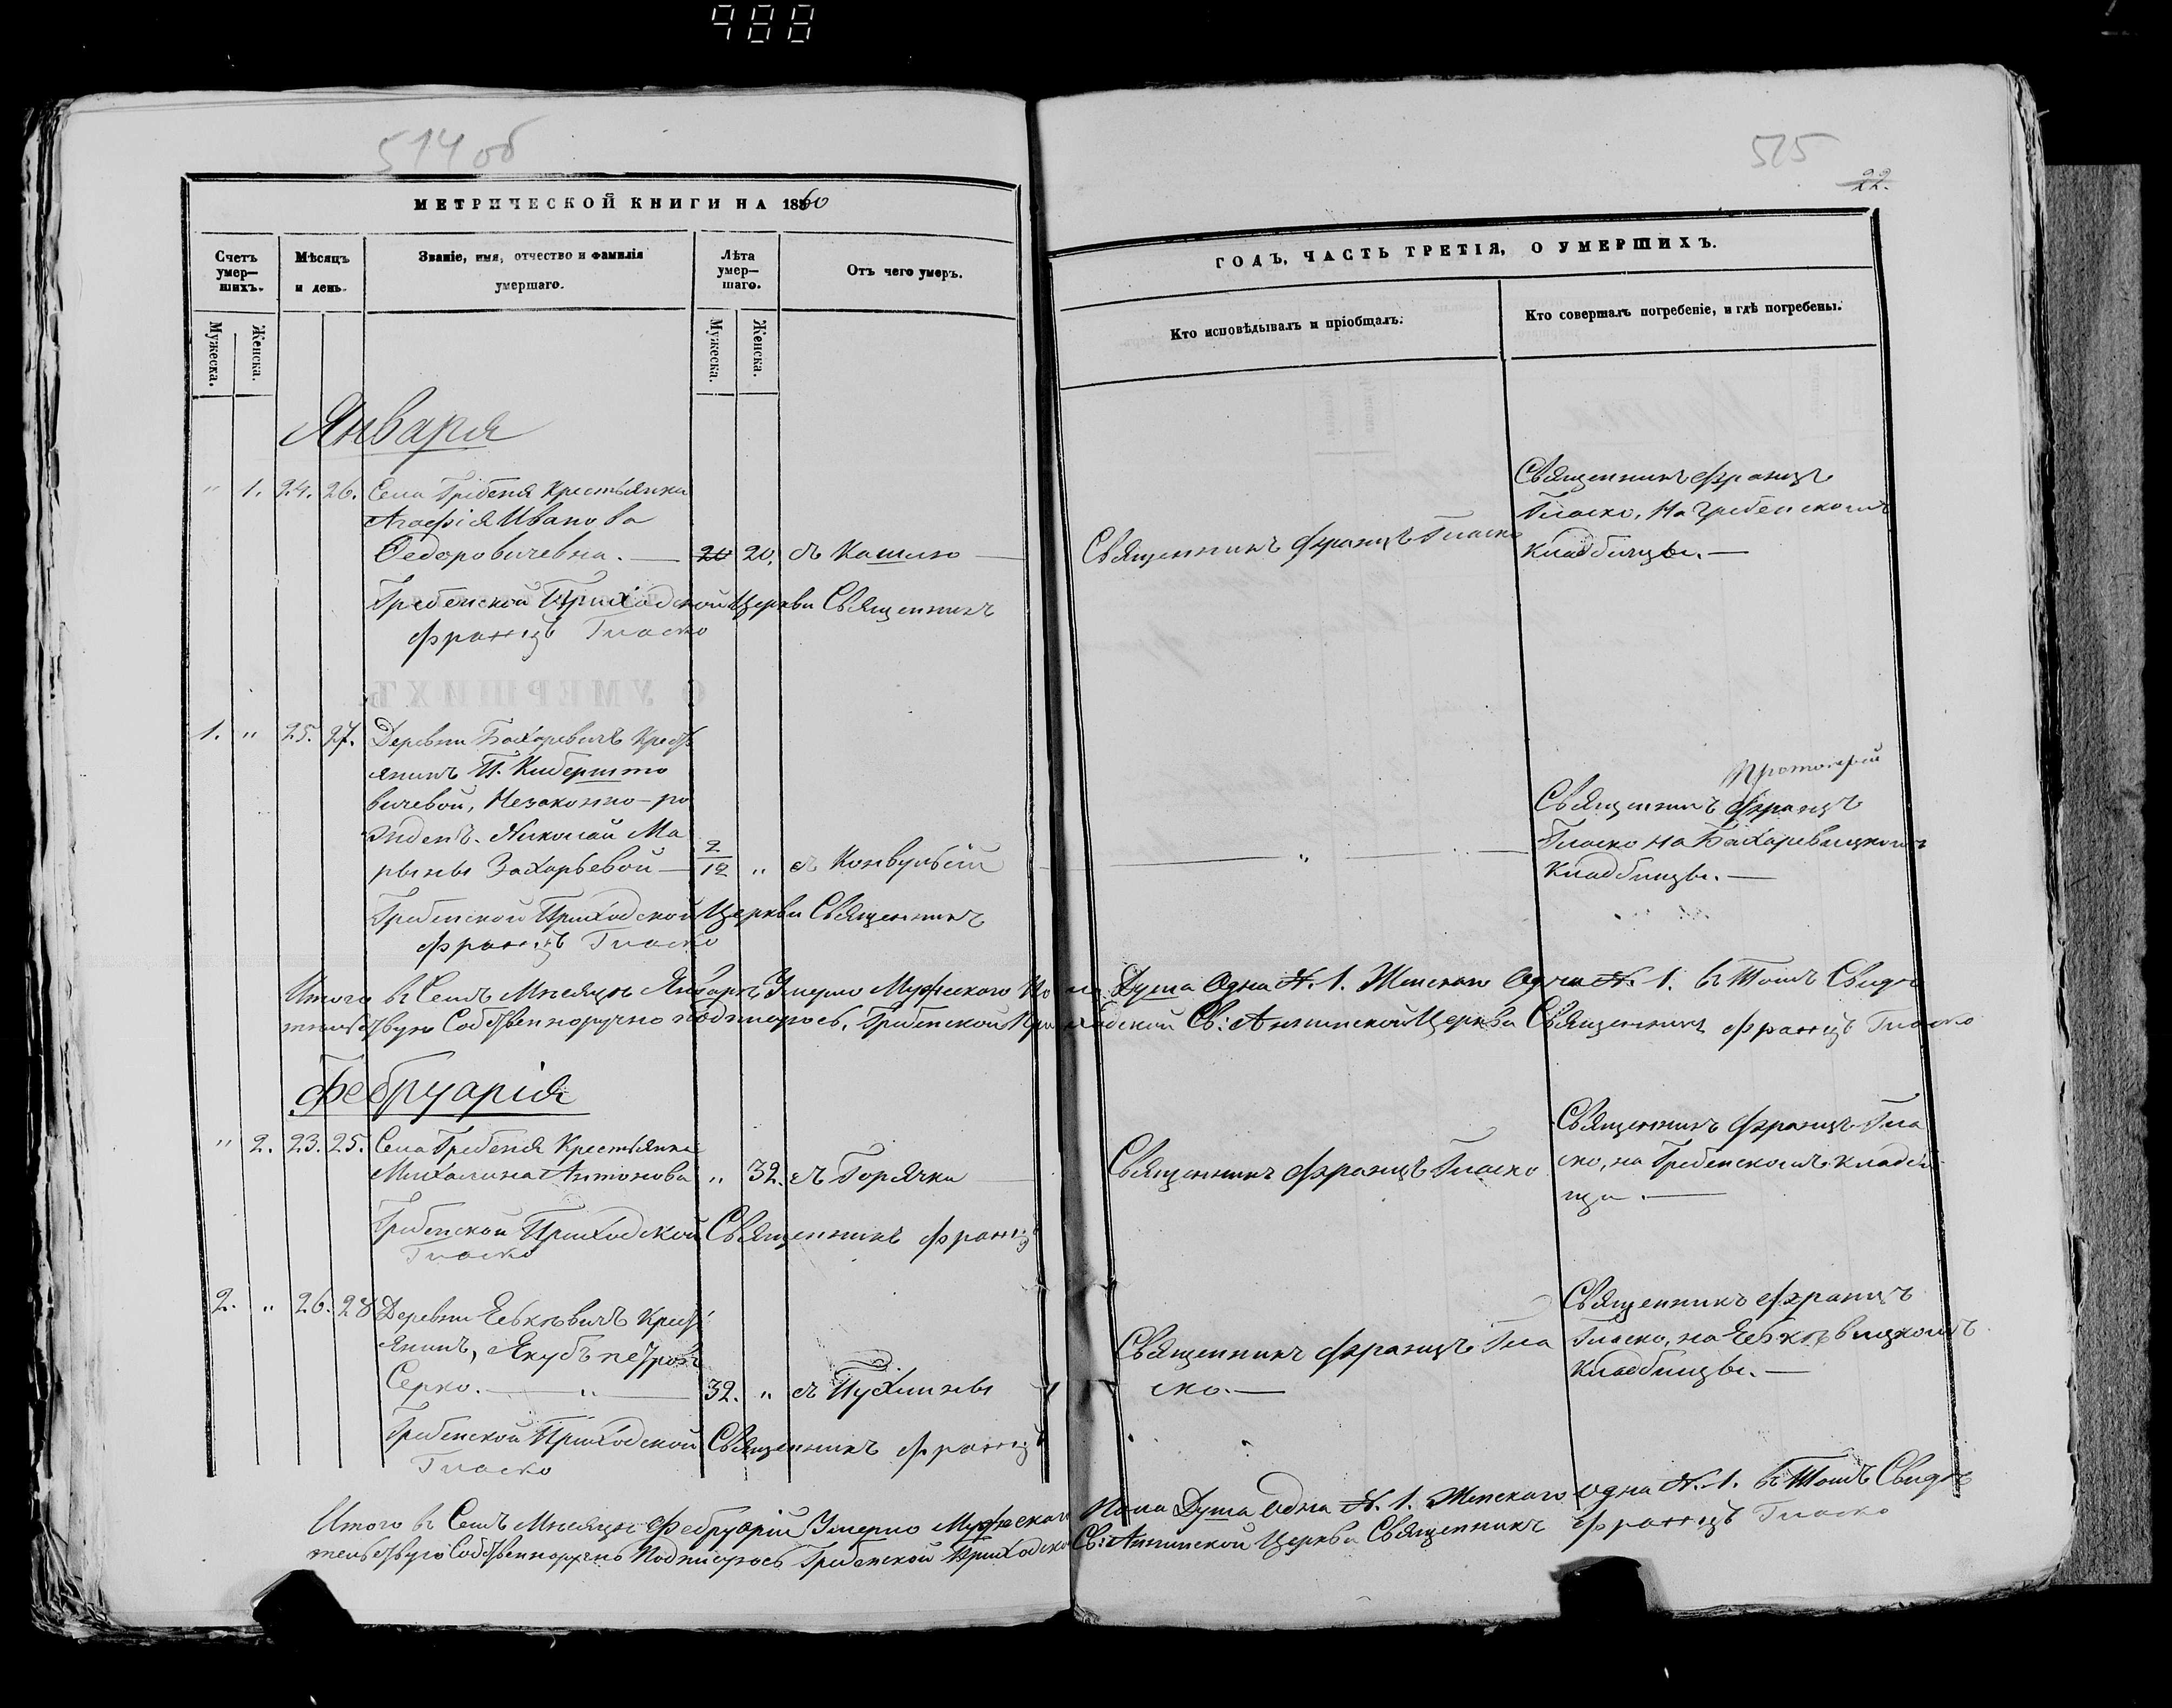 988
514 об
515
22.
МЕТРИЧЕСКОЙ КНИГИ НА 1860
ГОДЪ, ЧАСТЬ ТРЕТІЯ, О УМЕРШИХЪ.
Счетъ умер—шихъ.
Мѣсяцъ и день.
Званіе, имя, отчество и фамилія умершаго.
Лѣта умер—шаго.
Отъ чего умеръ.
Кто исповѣдывалъ и пріобщалъ.
Кто совершалъ погребеніе, и гдѣ погребены.
Мужеска.
Женска.
Мужеска.
Женска.
Января
" 1. 24. 26. Села Гребеня Крестьянка
Агафія Иванова
Федоровичевна. — 20 20. съ Кашлю —
Священникъ Францъ Гласко
Священникъ Францъ
Гласко, на Гребенскомъ
Кладбищѣ. —
Гребенской Приходской Церкви Священникъ
Францъ Гласко
1. " 25. 27. Деревни Бахаревичъ Кресть
янинъ
вичевой, Незаконно-ро
жденъ. Николай Ма
рьяны Захарьевой — 2/12 " съ Конвульсій
— " —
Протоіерей
Священникъ Францъ
Гласко на Бахаревицкомъ
Кладбищѣ. —
Гребенской Приходской Церкви Священникъ
Францъ Гласко
Итого въ Семъ Мѣсяцѣ Январѣ Умерло Мужескаго Пола Душа Одна №. 1. Женскаго Одна №. 1. въ Томъ Свидѣ
тельствую Собственноручно подписуюсь, Гребенской Приходской Св: Аннинской Церкви Священникъ Францъ Гласко
Февруарія
" 2. 23. 25. Села Гребеня Крестьянка
Михалина Антонова " 32. съ Горячки —
Священникъ Францъ Гласко
Священникъ Францъ Гла
ско, на Гребенскомъ Кладби
щи. —
Гребенской Приходской Священникъ Францъ
Гласко
2. " 26. 28 Деревни Кресть
янинъ, Якубъ Петровъ
Серко. — " — 32. " съ Пухлины
Священникъ Францъ Гла
ско. —
Священникъ Францъ
Гласко, на
Кладбищѣ. —
Гребенской Приходской Священникъ Францъ
Гласко
Итого въ Семъ Мѣсяцѣ Февруаріи Умерло Мужескаго Пола Душа Одна №. 1. Женскаго Одна №. 1. въ Томъ Свидѣ
тельствую Собственноручно Подписуюсь Гребенской Приходской Св: Аннинской Церкви Священникъ Францъ Гласко